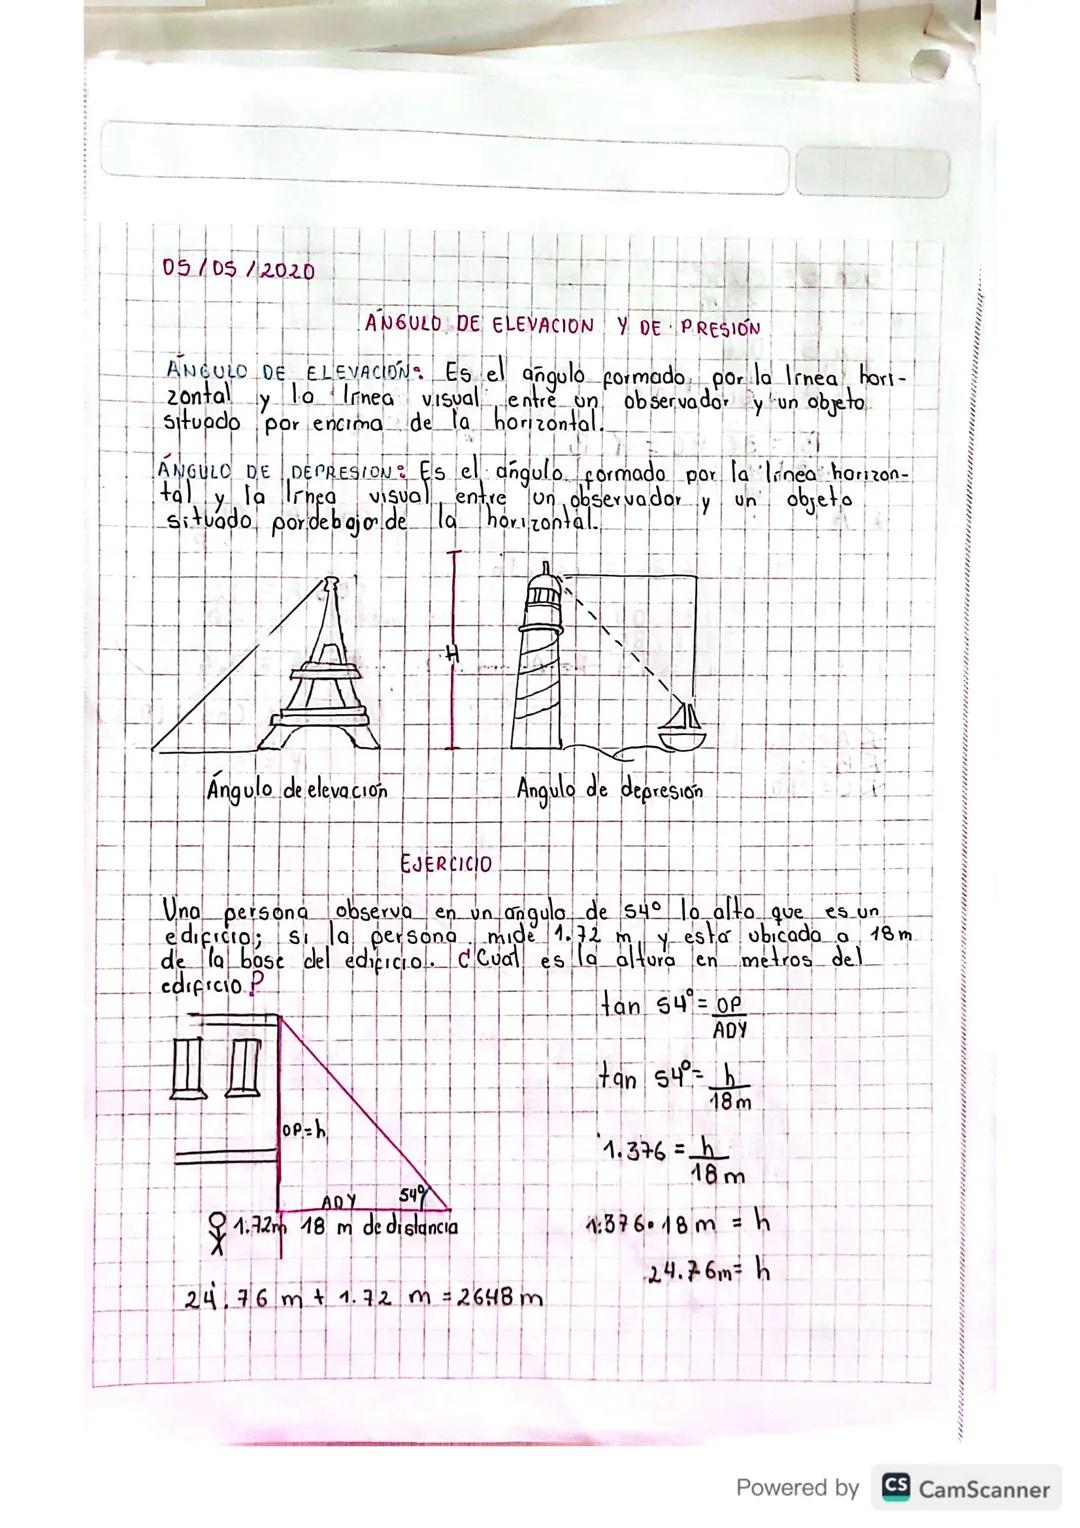 05/05/2020
ÁNGULO DE ELEVACION Y DE PRESIÓN
ÁNGULO DE ELEVACIÓN: Es el ángulo formado por la línea hori-
zontal y la línea visual entre un observador y un objeto
situado por encima de la horizontal.
ÁNGULO DE DEPRESION: Es el ángulo formado por la línea horizon-
tal y la línea visual entre un observador y un objeto
situado por debajo de la horizontal.
H
Ángulo de elevación
Angulo de depresión
EJERCICIO
Una persona observa en un angulo de 54° lo alto que es un
edificio; si la persona mide 1.72 m y esta ubicada a 18m
de la base del edificio. ¿Cual es la altura en metros del
edificio?
tan 54°= OP
ADY
tan 54°= h
18m
OP=h
1.376 = h
18 m
ADY 54°
1.72m 18 m de distancia
1.376 • 18 m = h
24.76m= h
24.76 m + 1.72 m = 26.48 m
Powered by CS CamScanner